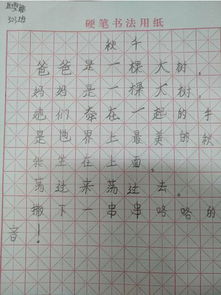 硬笔书法用纸
秋千
爸爸是一棵大树,
妈妈是一棵大树,
他们牵在一起的手
是世界上最美的秋
坐在上面,
荡过来荡过去。
撒下一串串咯咯的
音!